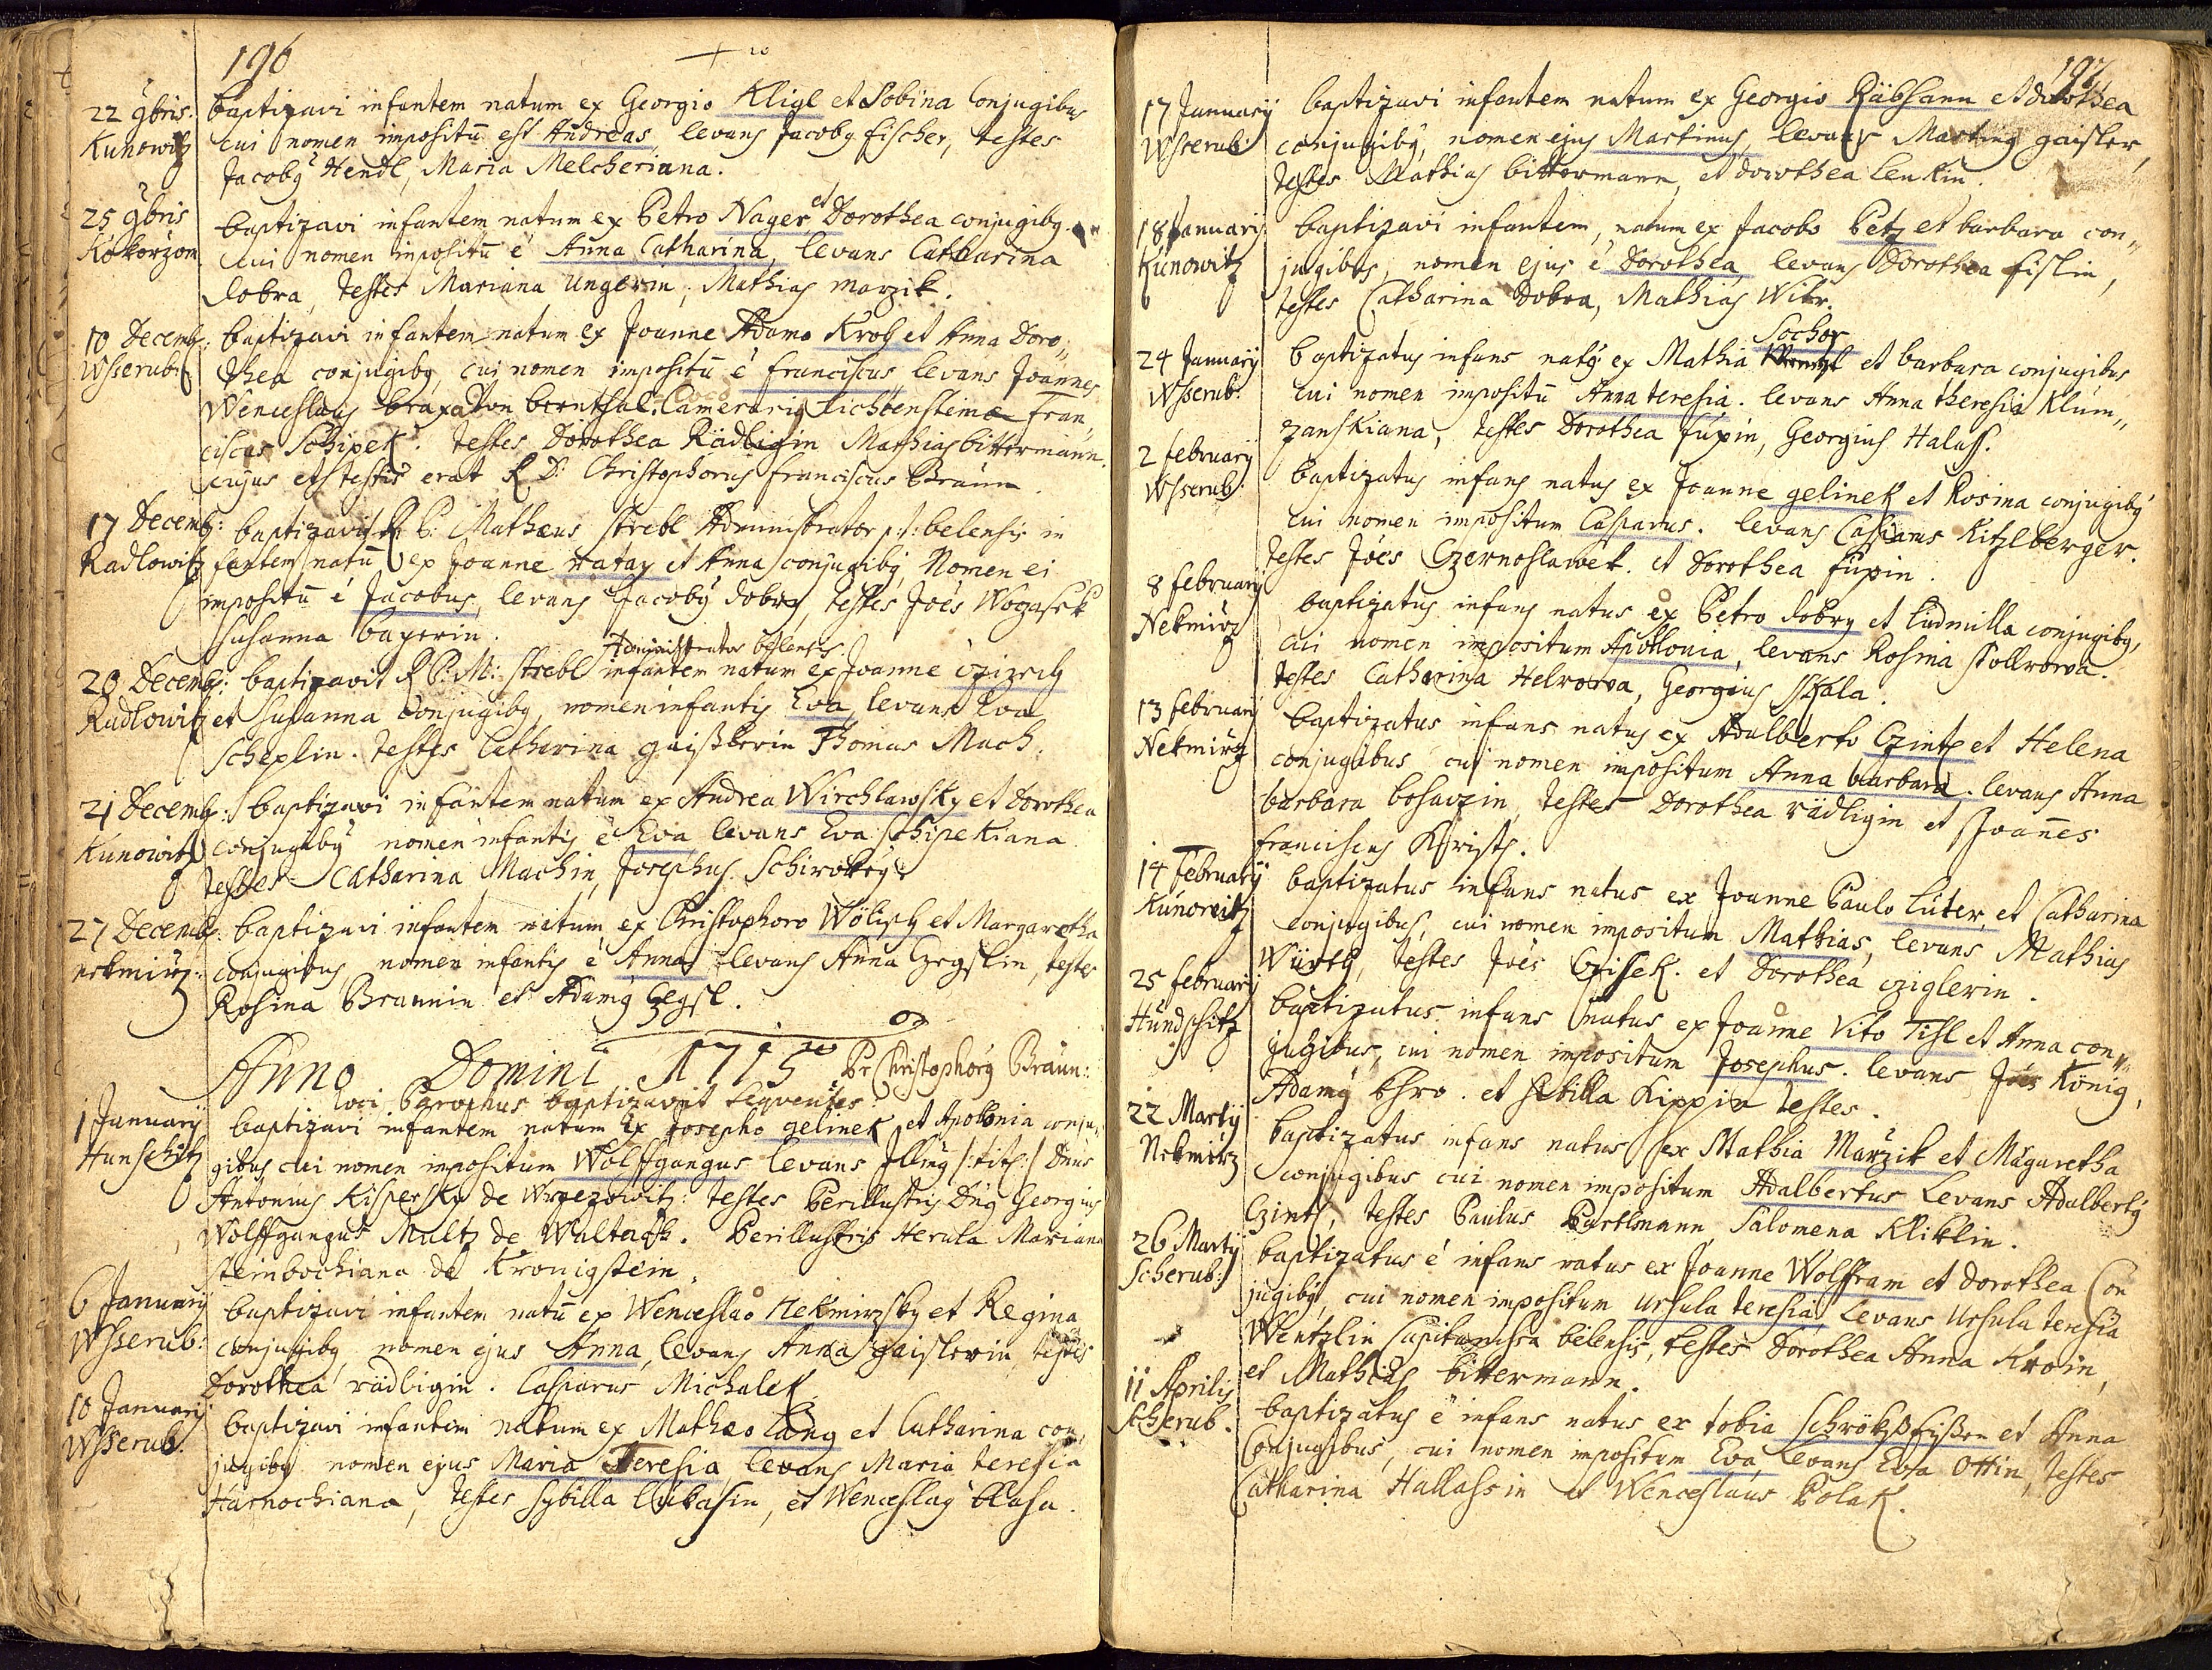 196
22 9bris. baptizavi infantem natum ex Georgio Kligl et Sobina Conjugibus
Kunowitz cui nomen impositū est Andreas, levans Jacoby fischer, testes
Jacoby Hendl, Maria Melcheriana.
25 9bris baptizavi infantem natum ex Petro Nager, et Dorothea conjugiby
Kokorzow cui nomen impositū ē Anna Catharina, levans Catharina
dobra, testes Mariana Ungerin, Mathias marzik.
10 Decemb: baptizavi infantem natum ex Joanne Adamo Kroh et Anna Doro„
Wsserub: thea conjugiby, cui nomen impositū ē franciscus levans Joannes
Wenceslaus braxator loco Camerarig fran„
ciscus Schipek. testes Dorothea Rädligin Mathias bittermann.
cujus ets testis erat R D. Christophorus franciscus Braun.
17 Decemb: baptizavit R P: Mathæus strebl Administrator p:t: belensis in
Radlowitz fantem natū ex Joanne Hatay et Anna conjugiby, Nomen ei
impositū ē Jacobus, levans Jacoby dobry, testes Joēs Wogasek
susanna bayerin.
Administrator bēlensis
20 Decemb: baptizavit R P: M: strebl infantem natum ex Joanne czizech
Radlowitz et susanna Conjugiby, nomen infantis Eva, levans Eva
Scheplin. testes Catharina gaißlerin Thomas Mach.
21 Decemb: baptizavi infantem natum ex Andrea Wirchlawsky et Dorothea
Kunowitz conjugiby nomen infantis ē Eva levans Eva schipekiana
testes Catharina Machin, Josephus Schiroky.
27 Decemb: baptizavi infantem natum ex Christophoro Wölisch et Margaretha
nekmirz: conjugibus nomen infantis ē Anna levans Anna Czegslin, testes
Rosina Braunin et Adamy Czegsl.
Anno Domini 1715 Pr Christophory Braun:
loci Parochus baptizavit seqventes
1 January baptizavi infantem natum ex Josepho gelinek et Apolonia conju„
Hunschitz gibus cui nomen impositum Wolffgangus levans Jlling /:tit:/ Dnus
Antonius Kispersky de Wrzezowitz: testes Perillustris Dnų Georgius
Wolffgangus Multz de Walterssh. Perillustris Herula Mariana
steinbochiana de Kronigstein.
6 January baptizavi infantem natū ex Wenceslao Nekmirzsky et Regina
Wsserub: conjugiby nomen ejus Anna, levans Anna gaislerin, testes
Dorothea rädligin. Casparus Michalek.
10 January baptizavi infantem natum ex Mathæo Lang et Catharina con„
Wsserub. jugiby nomen ejus Maria Teresia, levans Maria teresia
Harnochiana, testes Sybilla lukasin, et Wenceslag blaha.
197
17 January baptizavi infantem natum ex Georgio Räbsamn et dorothea
Wserub: conjugiby, nomen ejus Martinus, levans Marting gaisler,
testes Mathias bittermann, et dorothea Lenkin.
18 Januarij baptizavi infantem, natum ex Jacobo Petz et barbara con„
Kunowitz jugibus, nomen ejus ē Dorothea, levans Dorothea fislin,
testes Catharina Dobra, Mathias Wikr.
Sochor
24 January baptizatus infans naty ex Mathia et barbara conjugibus
Wserub: cui nomen impositū Anna teresia. levans Anna theresia Klum„
zanskiana, testes Dorothea fupin, Georgius Halass.
2 february baptizatus infans natus ex Joanne gelinek et Rosina conjugiby
Wsserub: cui nomen impositum Casparus. levans Casparus Kitzlberger.
testes Joēs Czernoslawek. et Dorothea fupin.
8 february baptizatus infans natus ex Petro dobry et Ludmilla conjugiby,
Nekmirz cui nomen impositum Apollonia, levans Rosina
testes Catharina Helrowa, Georgius skala.
13 february baptizatus infans natus ex Adalberto Czintz et Helena
Nekmirz conjugibus cui nomen impositum Anna barbara. levans Anna
barbara bohavzin, testes Dorothea rädligin et Joanes
franciscus Christs.
14 february baptizatus infans natus ex Joanne Paulo Luter, et Catharina
Kunowitz conjugibus, cui nomen impositum Mathias, levans Mathias
Würth, testes Joēs Czisek. et Dorothea cziglerin.
25 february baptizatus infans natus ex Joanne Vito Tihl et Anna con„
Hundschitz jugibus, cui nomen impositum Josephus. levans Joēs König,
Adamy Chro. et sibilla Kippin testes.
22 Marty baptizatus infans natus ex Mathia Marzik et Magaretha
Nekmirz conjugibus cui nomen impositum Adalbertus Levans Adalberty
Czintz, testes Paulus Bartlmann, Salomena Kliklin.
26 Marty baptizatus ē infans natus ex Joanne Wolffram et dorothea Con
Scherub: jugiby, cui nomen impositum Ursula teresia, Levans Ursula teresia
Wentzlin Capitanissa bēlensis, testes Dorothea Anna Kroin,
et Mathias bittermann.
11 Aprilis baptizatus ē infans natus ex tobia et Anna
Scherub. Conjugibus, cui nomen impositum Eva, levans Eva Ottin, testes
Catharina Hallassin et Wenceslaus Polak.